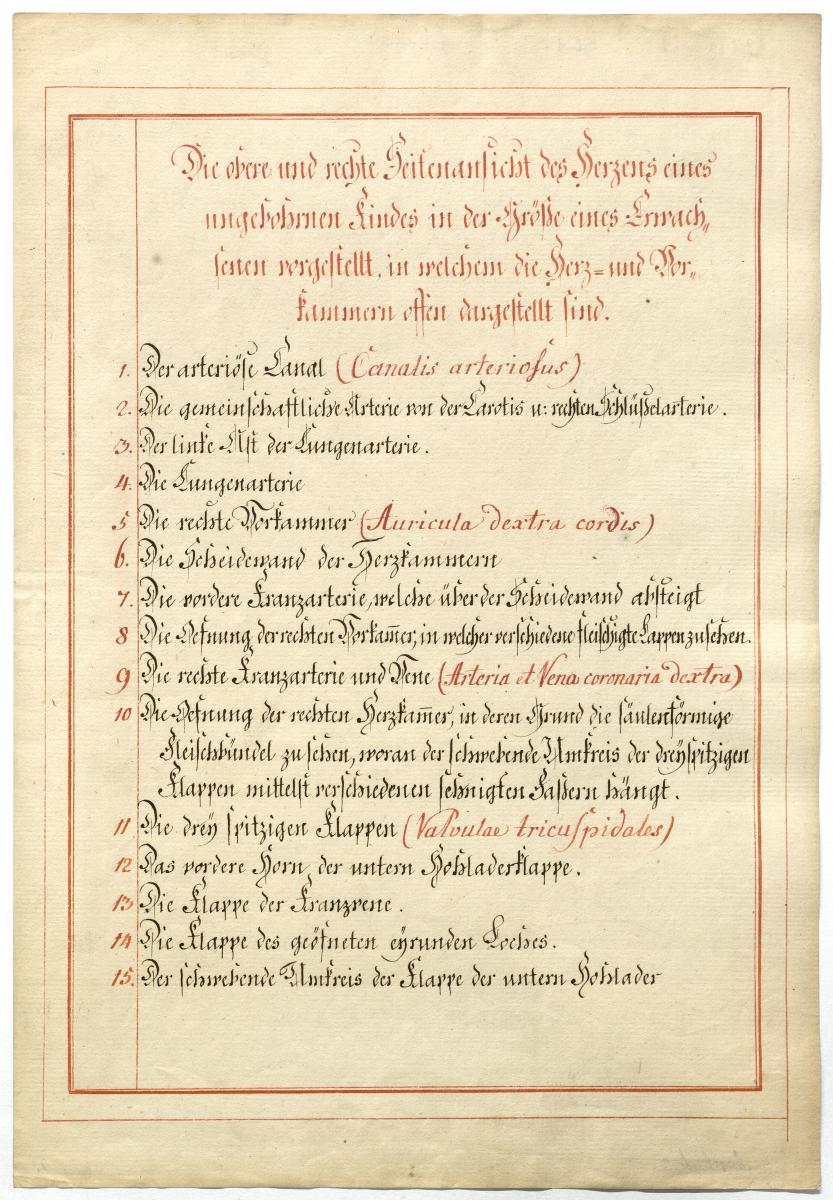 Die obere und rechte Seitenansicht des Herzens eines
ungebohrnen Kindes in der Größe eines Erwach=
senen vorgestellt, in welchem die Herz= und Vor=
kammern offen dargestellt sind.
1. Der arteriöse Canal (Canalis arteriosus)
2. Die gemeinschaftliche Arterie von der Carotis u: rechten Schlüßelarterie.
3. Der linke Ast der Lungenarterie.
4. Die Lungenarterie
5 Die rechte Vorkammer (Auricula dextra cordis)
6. Die Scheidewand der Herzkammern
7. Die vordere Kranzarterie, welche über der Scheidewand absteigt
8 Die Oefnung der rechten Vorkam̄er, in welcher verschiedene fleischigte Lappen zu sehen.
9 Die rechte Kranzarterie und Vene (Arteria et Vena coronaria dextra)
10 Die Oefnung der rechten Herzkam̄er, in deren Grund die säulenförmige
Fleischbündel zu sehen, woran der schwebende Umkreis der dreyspitzigen
Klappen mittelst verschiedenen sehnigten Faßern hängt.
11 Die drey spitzigen Klappen (Valvulae tricuspidales)
12 Das vordere Horn, der untern Hohladerklappe.
13 Die Klappe der Kranzvene.
14 Die Klappe des geöfneten eyrunden Loches.
15. Der schwebende Umkreis der Klappe der untern Hohlader